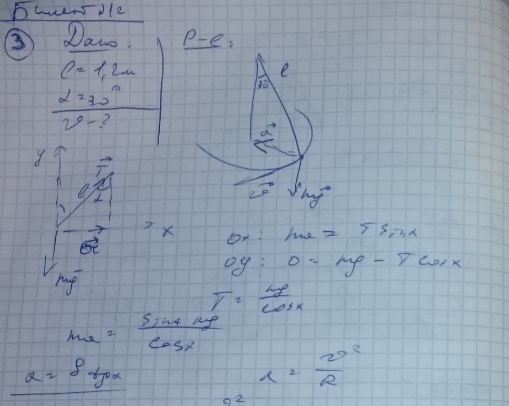 Билет №2
3 Дано: Р-е:
l = 1,2м
α = 30°
v - ?
30 l
a⃗
v⃗ mg⃗
y T⃗
l α
a⃗ x
mg⃗
Ox: ma = T sin α
Oy: 0 = mg - T cos α
T = mg / cos α
ma = sin α mg / cos α
a = g tg α
a = v² / R
v²